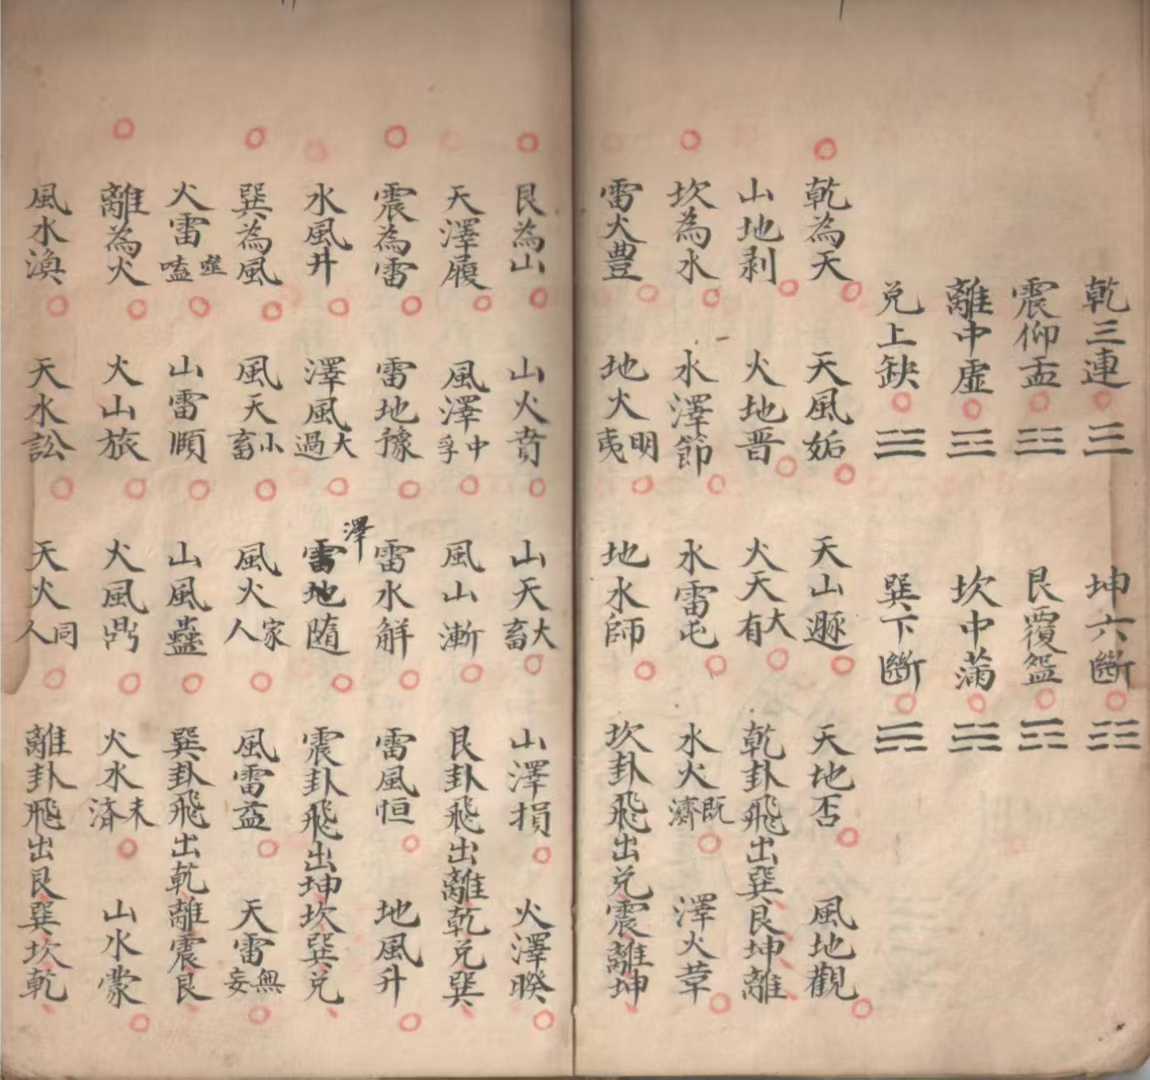 乾三連 坤六斷
震仰盂 艮覆盌
離中虛 坎中滿
兌上缺 巽下斷
乾為天 天風姤 天山遯 天地否 風地觀
山地剥 火地晋 火天大有 乾卦飛出巽艮坤離
坎為水 水澤節 水雷屯 水火既濟 澤火革
雷火豊 地火明夷 地水師 坎卦飛出兌震離坤
艮為山 山火賁 山天大畜 山澤損 火澤睽
天澤履 風澤中孚 風山漸 艮卦飛出離乾兌巽
震為雷 雷地豫 雷水解 雷風恒 地風升
水風井 澤風大過 澤雷地隨 震卦飛出坤坎巽兌
巽為風 風天小畜 風火家人 風雷益 天雷無妄
火雷噬嗑 山雷頤 山風蠱 巽卦飛出乾離震艮
離為火 火山旅 火風鼎 火水未済 山水蒙
風水渙 天水訟 天火同人 離卦飛出艮巽坎乾